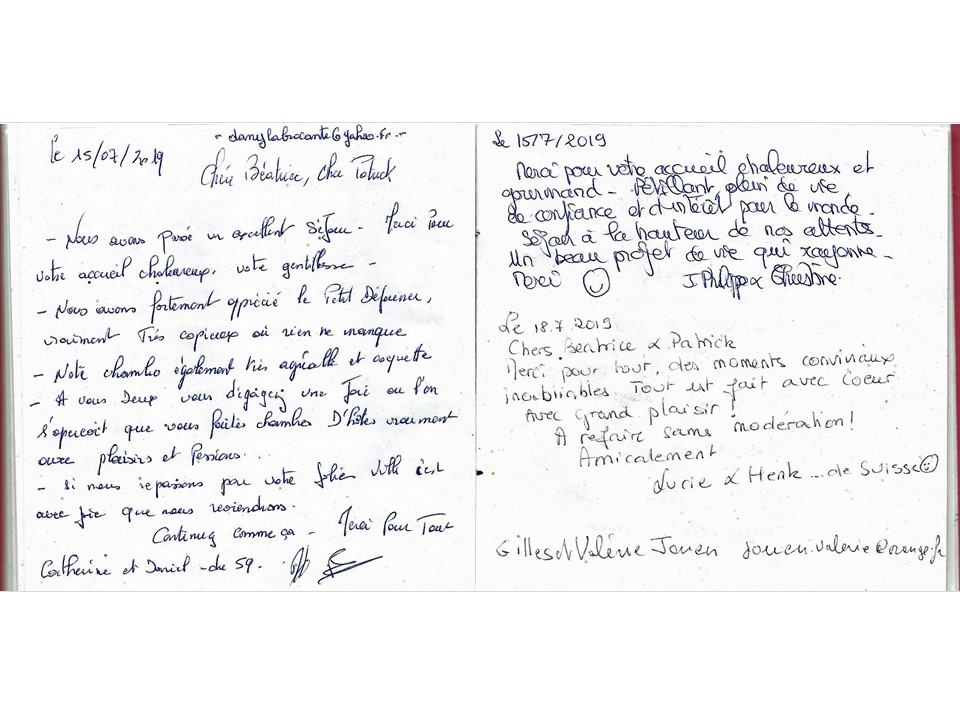 - danylabrocante@yahoo.fr -
le 15/07/2019
Chère Béatrice, cher Patrick
- Nous avons passé un excellent Séjour - Merci Pour
votre accueil chaleureux, votre gentillesse -
- Nous avons fortement apprécié le Petit Déjeuner,
vraiment Très copieux où rien ne manque
- Notre chambre également très agréable et coquette
- A vous Deux vous dégagez une Joie ou l'on
s'aperçoit que vous faites chambres D'hôtes vraiment
avec plaisirs et Passions...
- Si nous repassons par votre jolie ville c'est
avec joie que nous reviendrons.
Continuez comme ça - Merci Pour Tout
Catherine et Daniel - du 59.
Le 15/7/2019
Merci pour votre accueil chaleureux et
gourmand - Pétillant, plein de vie,
de confiance et d'intérêt pour le monde.
Séjour à la hauteur de nos attentes -
Un beau projet de vie qui rayonne -
Merci ☺ J Philippe & Christine.
Le 18.7.2019
Chers Béatrice & Patrick
Merci pour tout, des moments conviviaux
inoubliables. Tout est fait avec coeur
Avec grand plaisir !
A refaire sans modération !
Amicalement
Lucie & Henk ... de Suisse ☺
Gilles et Valérie Jouen jouen.valerie@orange.fr